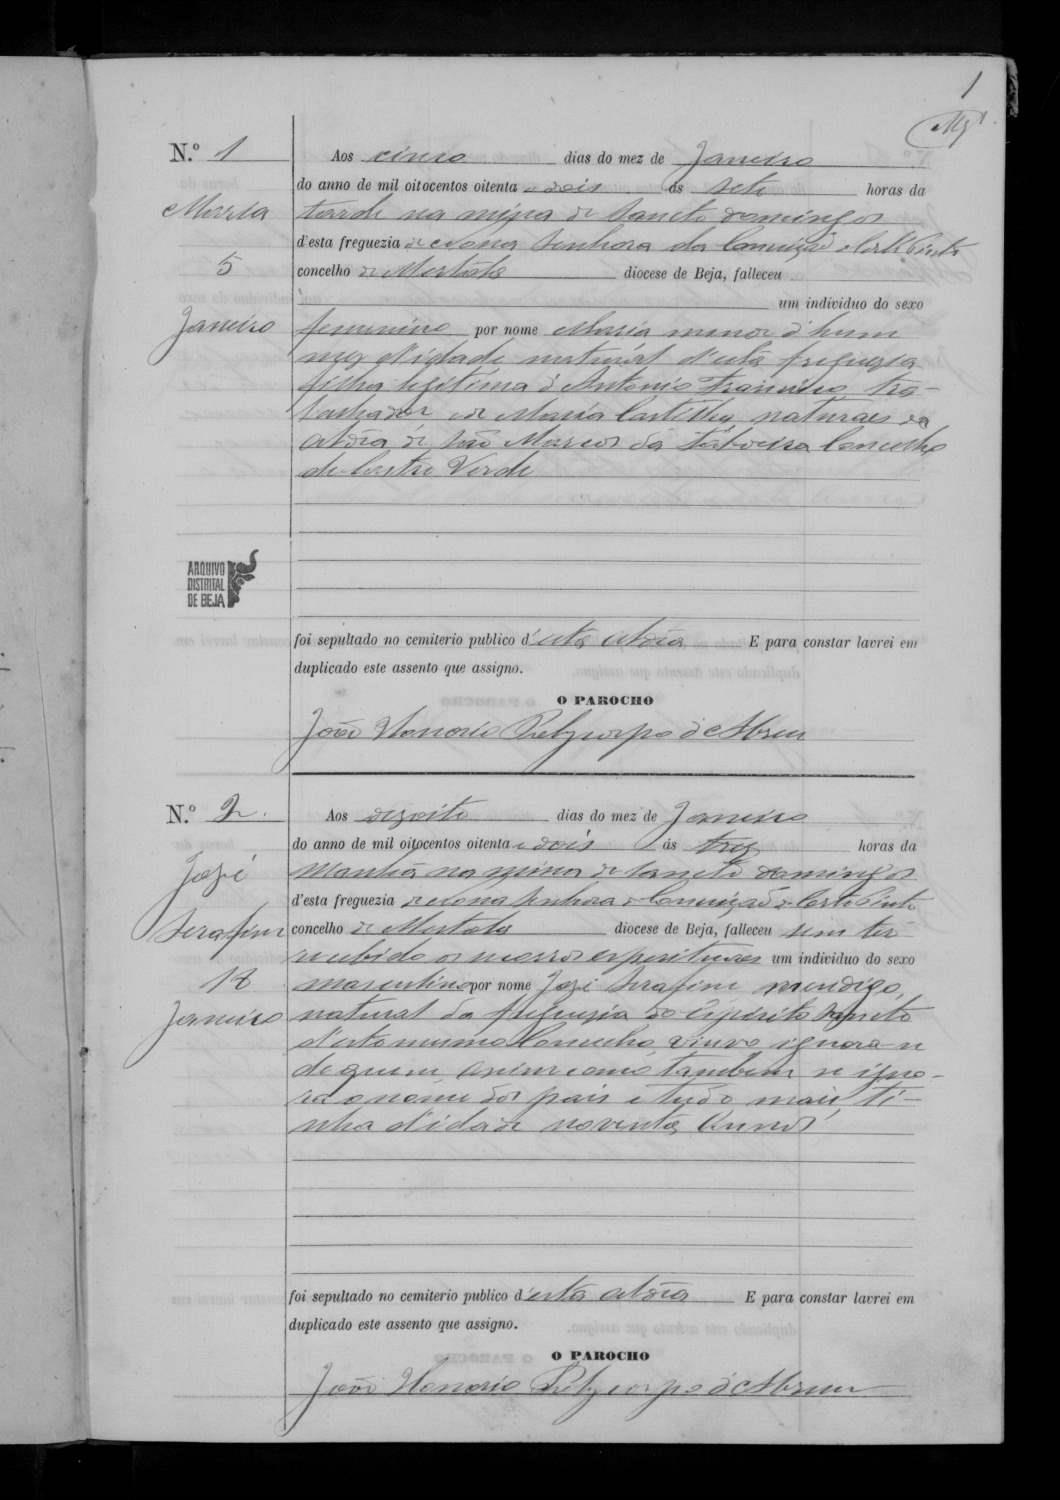 1
N.º 1
Maria
5
Janeiro
Aos cinco dias do mez de Janeiro
do anno de mil oitocentos oitenta e dois ás sete horas da
tarde na mina de Sancto Domingos
d'esta freguezia de Nossa Senhora da Conceição de Corte do Pinto
concelho de Mertola diocese de Beja, falleceu
um individuo do sexo
femenino por nome Maria menor d'hum
mez d'idade natural d'esta freguezia
filha legitima d'Antonio Francisco, tra-
balhador e de Maria naturaes da
aldêa de São Marcos da Taboeira Concelho
de Castro Verde
ARQUIVO
DISTRITAL
DE BEJA
foi sepultado no cemiterio publico d'esta aldêa E para constar lavrei em
duplicado este assento que assigno.
O PAROCHO
João Honorio d'Abreu
N.º 2.
José
Serafim
18
Janeiro
Aos dezoito dias do mez de Janeiro
do anno de mil oitocentos oitenta e dois ás trez horas da
Manhã na mina de Sancto Domingos
d'esta freguezia de Nossa Senhora da Conceição de Corte do Pinto
concelho de Mertola diocese de Beja, falleceu sem ter
recebido os socorros espirituaes um individuo do sexo
masculino por nome José Serafim mendigo,
natural da freguezia do Espirito Sancto
d'este mesmo Concelho, viuvo ignora-se
de quem, assim como tambem se igno-
ra o nome dos pais e tudo mais, ti-
nha d'idade noventa annos
foi sepultado no cemiterio publico d'esta aldêa E para constar lavrei em
duplicado este assento que assigno.
O PAROCHO
João Honorio d'Abreu